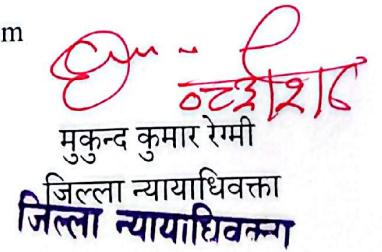 m
मुकुन्द कुमार रेग्मी
जिल्ला न्यायाधिवक्ता
जिल्ला न्यायाधिवक्ता